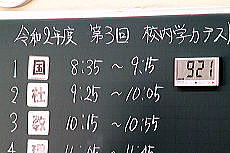 令和2年度 第3回 校内学力テスト
1 国 8:35 ~ 9:15
921
2 社 9:25 ~ 10:05
3 数 10:15 ~ 10:55
4